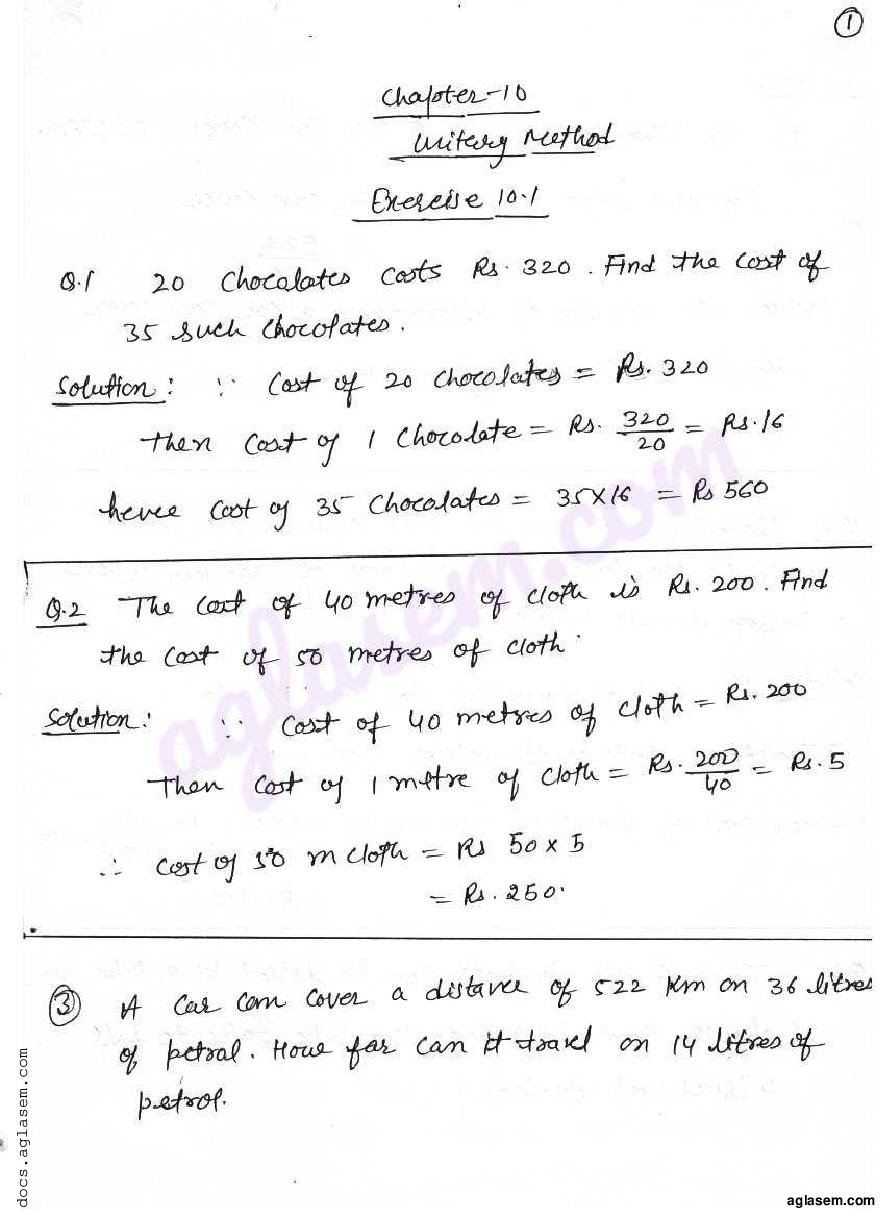 1
Chapter-10
Unitary Method
Exercise 10.1
Q.1 20 Chocolates costs Rs. 320. Find the cost of
35 such chocolates.
Solution: ∵ Cost of 20 chocolates = Rs. 320
then cost of 1 chocolate = Rs. 320/20 = Rs. 16
hence cost of 35 chocolates = 35×16 = Rs 560
Q.2 The cost of 40 metres of cloth is Rs. 200. Find
the cost of 50 metres of cloth.
Solution: ∵ Cost of 40 metres of cloth = Rs. 200
Then cost of 1 metre of cloth = Rs. 200/40 = Rs. 5
∴ cost of 50 m cloth = Rs 50 × 5
= Rs. 250.
3 A car can cover a distance of 522 Km on 36 litres
of petral. How far can it travel on 14 litres of
petrol.
aglasem.com
docs.aglasem.com
aglasem.com